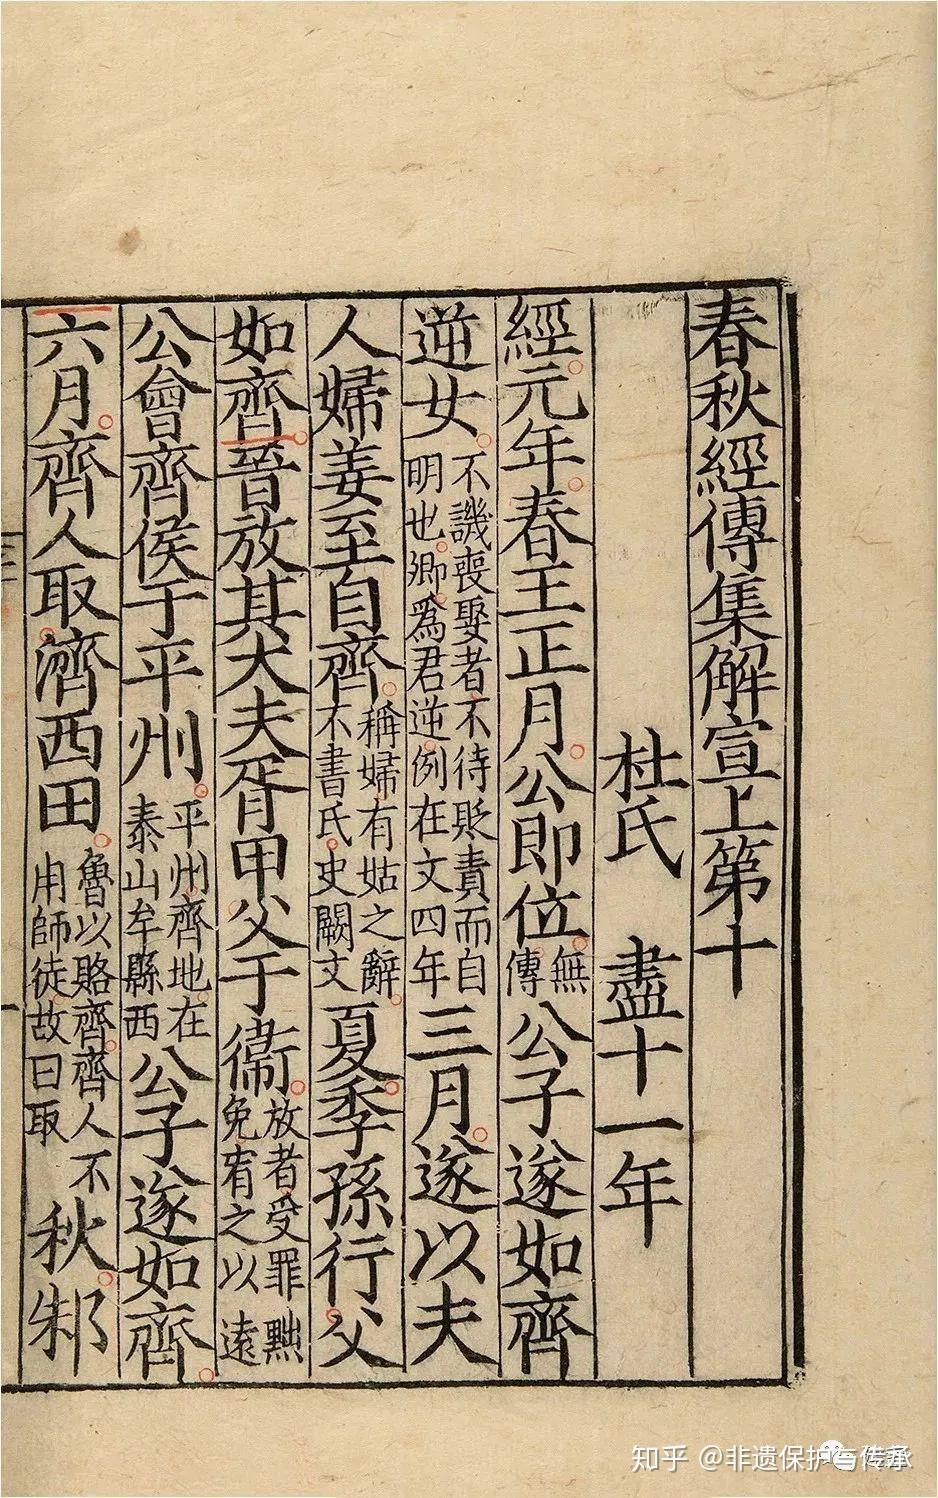 春秋經傳集解宣上第十
杜氏 盡十一年
經元年春王正月公即位無傳公子遂如齊
逆女不譏喪娶者不待貶責而自明也卿爲君逆例在文四年三月遂以夫
人婦姜至自齊稱婦有姑之辭不書氏史闕文夏季孫行父
如齊晉放其大夫胥甲父于衞放者受罪黜免宥之以遠
公會齊侯于平州平州齊地在泰山牟縣西公子遂如齊
六月齊人取濟西田魯以賂齊齊人不用師徒故曰取秋邾
知乎 @非遗保护与传承